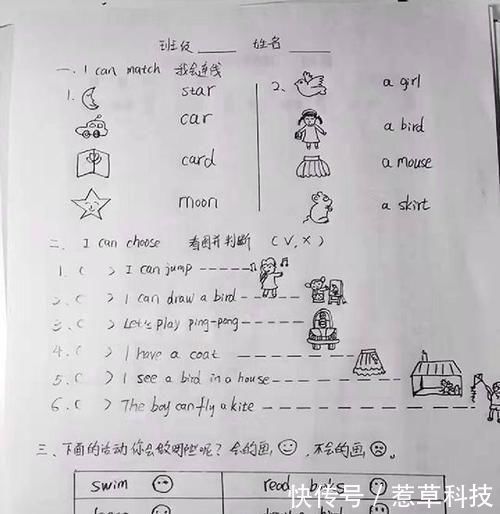 班级 姓名
一、I can match 我会连线
1. star 2. a girl
car a bird
card a mouse
moon a skirt
二、I can choose 看图并判断 (√,×)
1. ( ) I can jump
2. ( ) I can draw a bird
3. ( ) Let's play ping-pong
4. ( ) I have a coat
5. ( ) I see a bird in a house
6. ( ) The boy can fly a kite
三、下面的活动你会做哪些呢? 会的画, 不会的画
swim read books
快传号 / 惹草科技